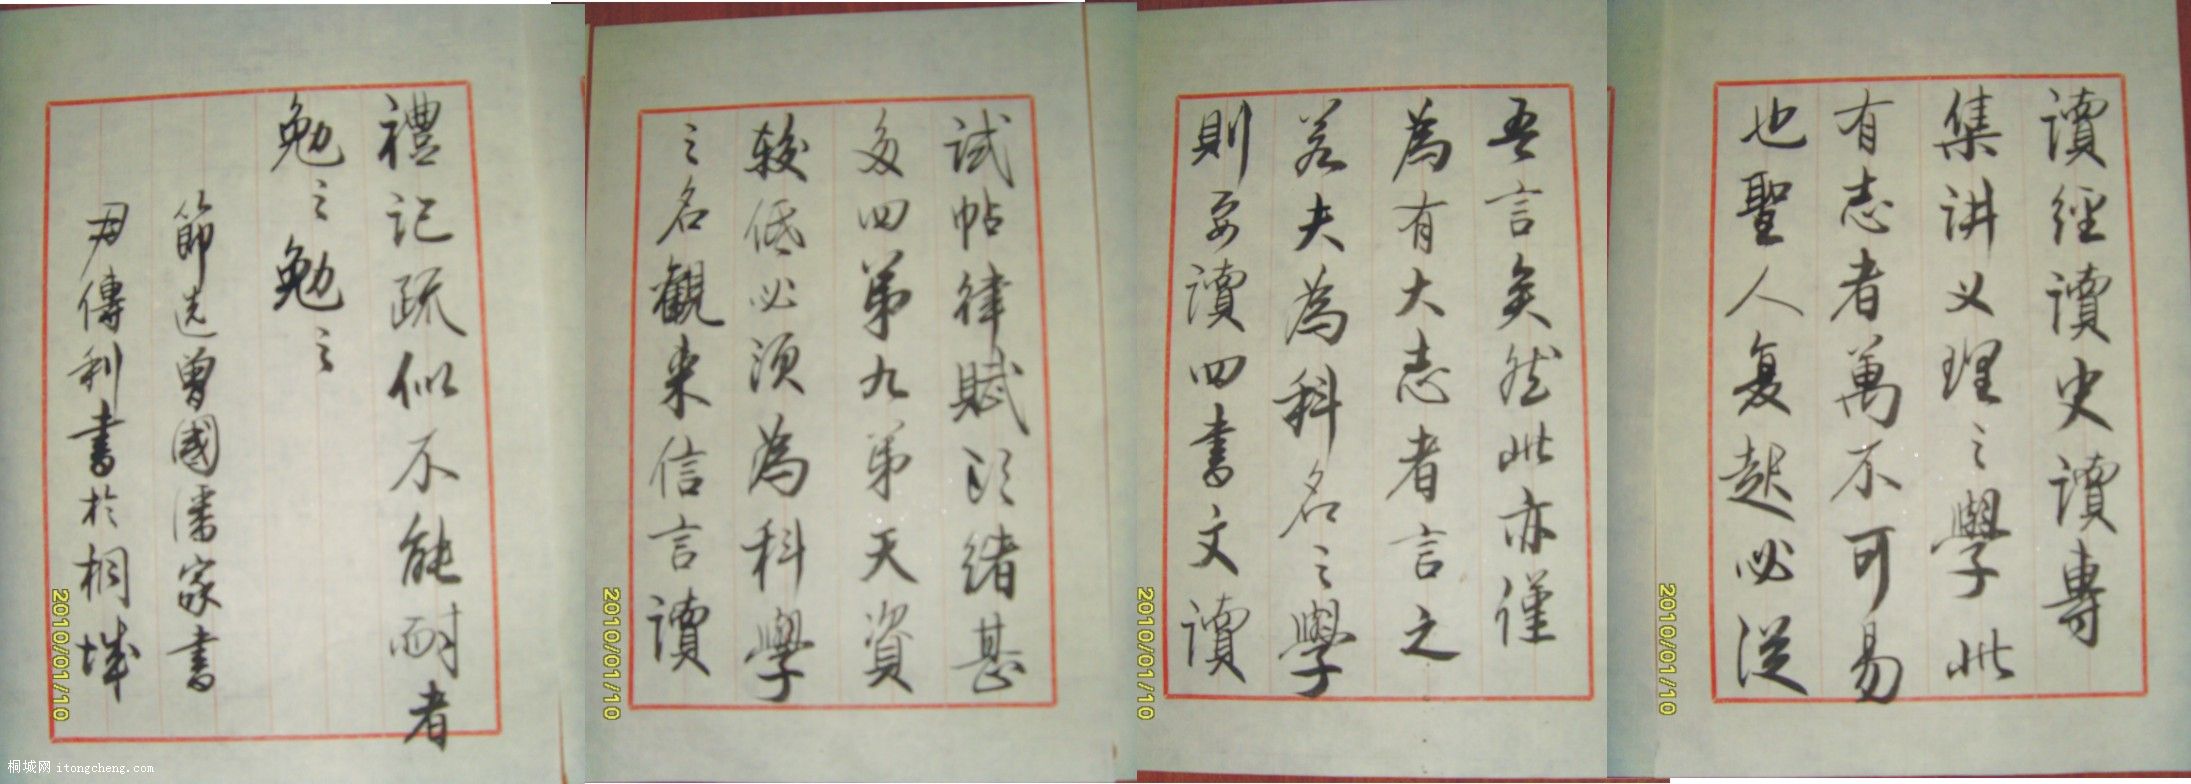 讀經讀史讀專
集讲义理之學此
有志者萬不可易
也聖人复起必從
吾言矣然此亦僅
為有大志者言之
若夫為科名之學
則要讀四書文讀
試帖律賦头緒甚
多四弟九弟天資
較低必須為科學
之名觀来信言讀
禮記疏似不能耐者
勉之勉之
節选曾國潘家書
傳利書於桐城
2010/01/10
2010/01/10
2010/01/10
2010/01/10
桐城网 itongcheng.com